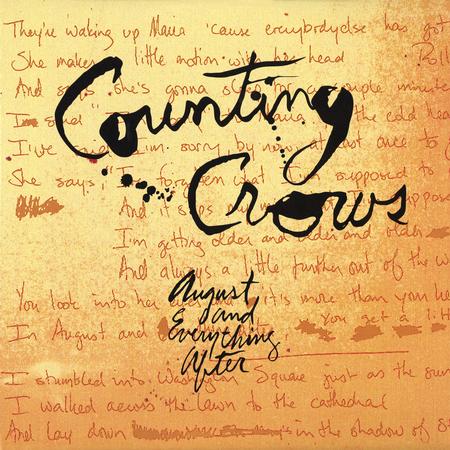 They're waking up Maria 'cause everybodyelse has got
She makes little motion with her head
And says she's gonna sleep for a couple minute
Counting
I've said I'm sorry by now at least once to
She says I forgotten what I'm supposed to
Crows
And it's
I'm getting older and older and older
And always a little further out of the w
August
and
Everything
After
You look into her it's more than you he
In August and you get a li
I stumbled into Washington Square just as the sun
I walked across the lawn to the cathedral
And lay down in the shadow of S